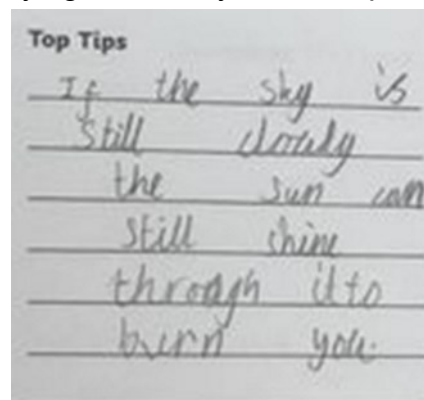 Top Tips
If the sky is
still cloudy
the sun can
still shine
through it to
burn you.